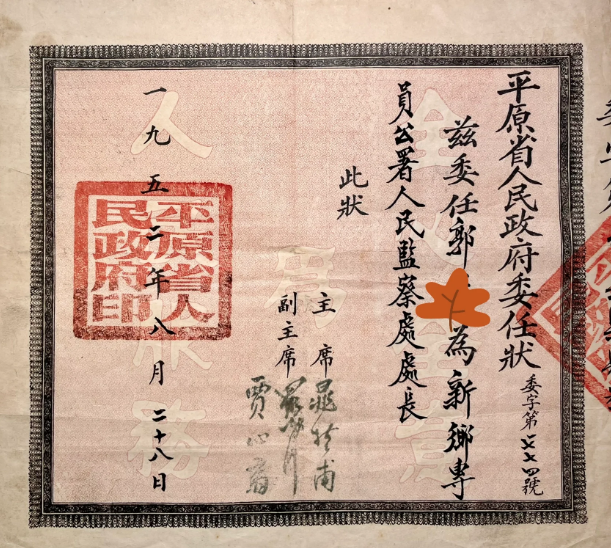 平原省人民政府委任狀
委字第
號
茲委任郭
為新鄉專
員公署人民監蔡處處長
此狀
主席
副主席 賈心齋
一九五二年八月二十八日
平原省人
民政府印
全
人
為
務